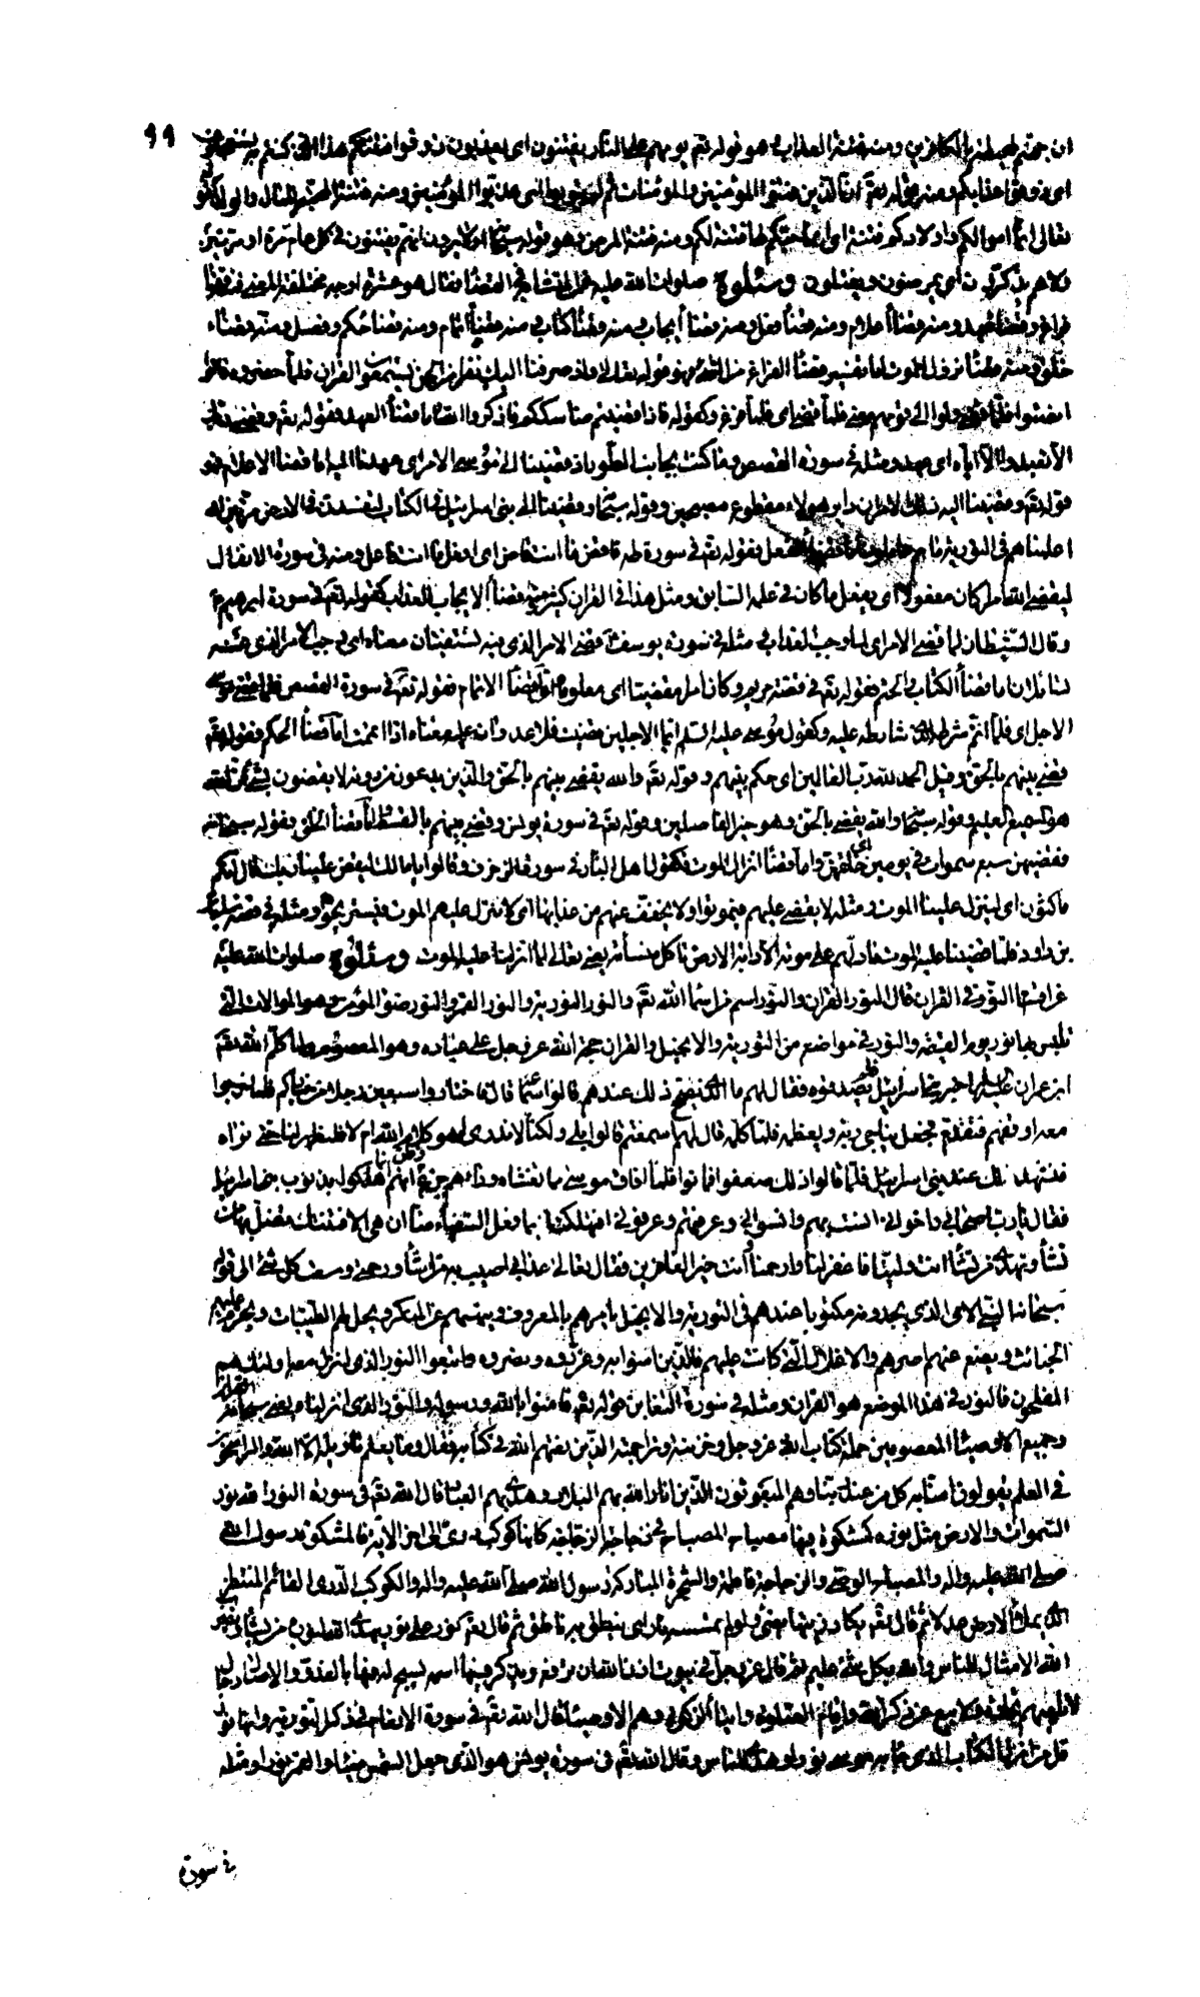 ٩٩
ان جهنم لمحيطة بالكافرين ومنه فتنة العذاب وهو قوله تعٓ يوم هم على النار يفتنون اى يعذبون ذوقوا فتنتكم هذا الذى كنتم به تستعجلون
اى ذوقوا عذابكم ومنه قوله تعٓ ان الذين فتنوا المؤمنين والمؤمنات ثم لم يتوبوا اى عذبوا المؤمنين ومنه فتنة المحبة للمال والولد كقوله
تعالى انما اموالكم واولادكم فتنة اى انما حبكم لها فتنة لكم ومنه فتنة المرض وهو قوله سبحانه اولا يرون انهم يفتنون فى كل عام مرة او مرتين
ولا هم يذكرون اى يمرضون ويعتلون وسئلوه صلوات الله عليه عن المتشابه فى القضاء فقال هو عشرة اوجه مختلفة المعنى فمنه قضاء
فراغ وقضاء عهد ومنه قضاء اعلام ومنه قضاء فعل ومنه قضاء ايجاب ومنه قضاء كتاب ومنه قضاء اتمام ومنه قضاء حكم وفصل ومنه قضاء
خلق ومنه قضاء نزول الموت اما تفسير قضاء الفراغ من الشئ فهو قوله تعالى واذ صرفنا اليك نفرا من الجن يستمعون القران فلما حضروه قالوا
انصتوا فلما قضى ولوا الى قومهم معنى فلما قضى اى فلما فرغ وكقوله فاذا قضيتم مناسككم فاذكروا الله اما قضاء العهد فقوله تعٓ وقضى ربك
الا تعبدوا الا اياه اى عهد ومثله فى سورة القصص وما كنت بجانب الغربى اذ قضينا الى موسى الامر اى عهدنا اليه اما قضاء الاعلام فهو
قوله تعٓ وقضينا اليه ذلك الامر ان دابر هؤلاء مقطوع مصبحين وقوله سبحانه وقضينا الى بنى اسرائيل فى الكتاب لتفسدن فى الارض مرتين اى
اعلمناهم فى التورية ما هم عاملون اما قضاء الفعل فقوله تعٓ فى سورة طه فاقض ما انت قاض اى افعل ما انت فاعل ومنه فى سورة الانفال
ليقضى الله امرا كان مفعولا اى يفعل ما كان فى علمه السابق ومثل هذا فى القران كثير اما قضاء الايجاب للعذاب كقوله تعٓ فى سورة ابرهيم ع
وقال الشيطان لما قضى الامر اى لما وجب العذاب ومثله فى سورة يوسف ع قضى الامر الذى فيه تستفتيان معناه اى وجب الامر الذى عنه
تسائلان اما قضاء الكتاب والحتم فقوله تعٓ فى قصة مريم وكان امرا مقضيا اى معلوما واما قضاء الاتمام فقوله تعٓ فى سورة القصص فلما قضى موسى
الاجل اى فلما اتم شرطه الذى شارطه عليه وكقول موسى عليه السلم ايما الاجلين قضيت فلا عدوان على معناه اذا اتممت اما قضاء الحكم فقوله تعٓ
قضى بينهم بالحق وقيل الحمد لله رب العالمين اى حكم بينهم وقوله تعٓ والله يقضى بينهم بالحق والذين يدعون من دونه لا يقضون بشئ ان الله
هو السميع العليم وقوله سبحانه والله يقضى بالحق وهو خير الفاصلين وقوله تعٓ فى سورة يونس وقضى بينهم بالقسط اما قضاء الخلق فقوله سبحانه
فقضيهن سبع سموات فى يومين اى خلقهن واما قضاء انزال الموت فكقول اهل النار فى سورة الزخرف وقالوا يا مالك ليقض علينا ربك قال انكم
ماكثون اى لينزل علينا الموت ومثله لا يقضى عليهم فيموتوا ولا يخفف عنهم من عذابها اى لا ينزل عليهم الموت فيستريحوا ومثله فى قصة سليمان
بن داود فلما قضينا عليه الموت ما دلهم على موته الا دابة الارض تاكل منساته يعنى تعالى لما انزلنا عليه الموت وسئلوه صلوات الله عليه
عن اقسام النور فى القران قال النور القران والنور اسم من اسماء الله تعٓ والنور التورية والنور القمر والنور ضوء المؤمن وهو الموالات التى
يلبس بها نور يوم القيمة والنور فى مواضع من التورية والانجيل والقران حجة الله عز وجل على عباده وهو المعصوم ولما كلم الله تعٓ
ابن عمران عليه السلم اخبر بنى اسرائيل فلم يصدقوه فقال لهم ما الذى يصحح ذلك عندكم قالوا سماعه قال فاختاروا سبعين رجلا من خياركم فلما خرجوا
معه اوقفهم فتقدم فجعل يناجى ربه ويعظمه فلما كلمه قال لهم اسمعتم قالوا بلى ولكنا لا ندرى اهو كلام الله ام لا فليظهر لنا حتى نراه
فنشهد لك عند بنى اسرائيل فلما قالوا ذلك صعقوا فماتوا فلما افاق موسى مما تغشاه وراهم جزع وظن انهم انما هلكوا بذنوب بنى اسرائيل
فقال يا رب اصحابى واخوانى انست بهم وانسوا بى وعرفتهم وعرفونى اتهلكنا بما فعل السفهاء منا ان هى الا فتنتك تضل بها من
تشاء وتهدى من تشاء انت ولينا فاغفر لنا وارحمنا وانت خير الغافرين فقال تعالى عذابى اصيب به من اشاء ورحمتى وسعت كل شئ الى قوله
سبحانه النبى الامى الذى يجدونه مكتوبا عندهم فى التورية والانجيل يامرهم بالمعروف وينهيهم عن المنكر ويحل لهم الطيبات ويحرم عليهم
الخبائث ويضع عنهم اصرهم والاغلال التى كانت عليهم فالذين امنوا به وعزروه ونصروه واتبعوا النور الذى انزل معه اولئك هم
المفلحون فالنور فى هذا الموضع هو القران ومثله فى سورة التغابن قوله تعٓ فامنوا بالله ورسوله والنور الذى انزلنا يعنى سبحانه القران
وجميع الاوصياء المعصومين حملة كتاب الله عز وجل وخزنته وتراجمته الذين نعتهم الله فى كتابه فقال وما يعلم تاويله الا الله والراسخون
فى العلم يقولون امنا به كل من عند ربنا وهم المنعوتون الذين انار الله بهم البلاد وهدى بهم العباد قال الله تعٓ فى سورة النور الله نور
السموات والارض مثل نوره كمشكوة فيها مصباح المصباح فى زجاجة الزجاجة كانها كوكب درى الى اخر الاية فالمشكوة رسول الله
صلى الله عليه واله والمصباح الوصى والزجاجة فاطمة والشجرة المباركة رسول الله صلى الله عليه واله والكوكب الدرى القائم المنتظر
الذى يملأ الارض عدلا ثم قال تعٓ يكاد زيتها يضئ ولو لم تمسسه نار اى ينطق به ناطق ثم قال تعٓ نور على نور يهدى الله لنوره من يشاء ويضرب
الله الامثال للناس والله بكل شئ عليم ثم قال عز وجل فى بيوت اذن الله ان ترفع ويذكر فيها اسمه يسبح له فيها بالغدو والاصال رجال
لا تلهيهم تجارة ولا بيع عن ذكر الله واقام الصلوة وايتاء الزكوة وهم الاوصياء قال الله تعٓ فى سورة الانعام فى ذكر التورية وانها نور
قل من انزل الكتاب الذى جاء به موسى نورا وهدى للناس وقال الله تعٓ فى سورة يونس هو الذى جعل الشمس ضياء والقمر نورا ومثله
فى سورة